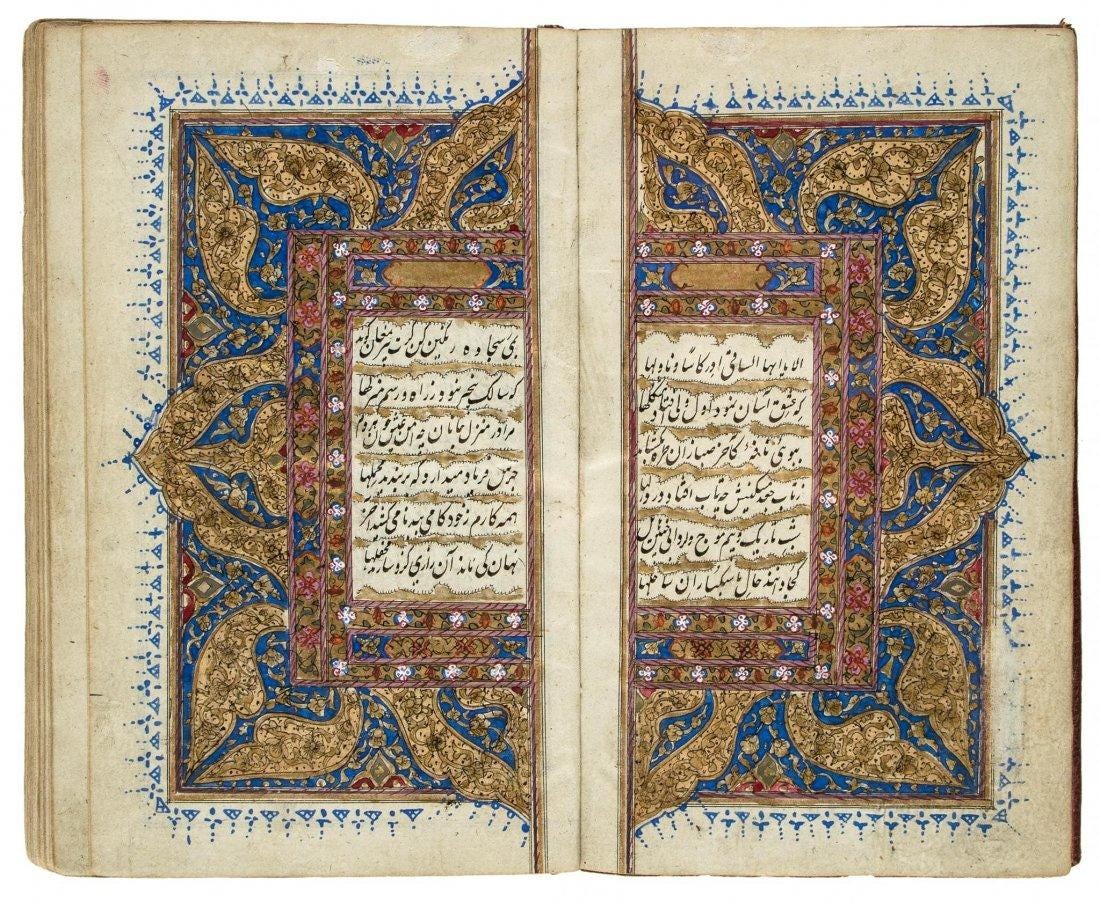 الا یا ایها الساقی ادر کاسا و ناولها
که عشق آسان نمود اول ولی افتاد مشکلها
ببوی نافه کاخر صبا زان طره بکشاید
ز تاب جعد مشکینش چه تاب افتاد در دلها
شب تاریک و بیم موج و گردابی چنین هایل
کجا دانند حال ما سبکساران ساحلها
بمی سجاده رنگین کن گرت پیر مغان گوید
که سالک بیخبر نبود ز راه و رسم منزلها
مرا در منزل جانان چه امن عیش چون هر دم
جرس فریاد میدارد که بربندید محملها
همه کارم ز خود کامی به بدنامی کشید آخر
نهان کی ماند آن رازی کزو سازند محفلها